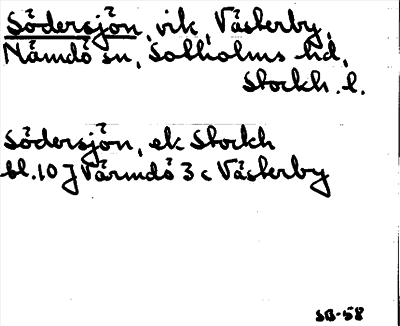 Södersjön, vik, Västerby,
Nämdö sn, Sollholms hd,
Stockh. l.
Södersjön, ek Stockh
bl. 10 J Värmdö 3 c Västerby
SB-58